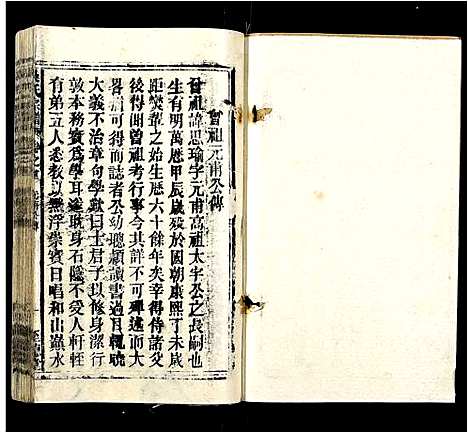 曾祖元甫公傳
曾祖諱思瑜字元甫高祖太宇公之長嗣也
生有明萬歷甲辰歲歿於國朝康熙丁未歲
距㷊輩之始生歷六十餘年矣幸得侍諸父
後得聞曾祖考行事今其詳不可殫述而大
畧猶可得而誌者公幼聰頴讀書過目輒曉
大義不治章句學歎曰士君子以修身潔行
敦本務實爲學耳遂耽身石隱不受人軒輊
有弟五人悉教以無浮薄實日唱和山巔水
氏宗譜